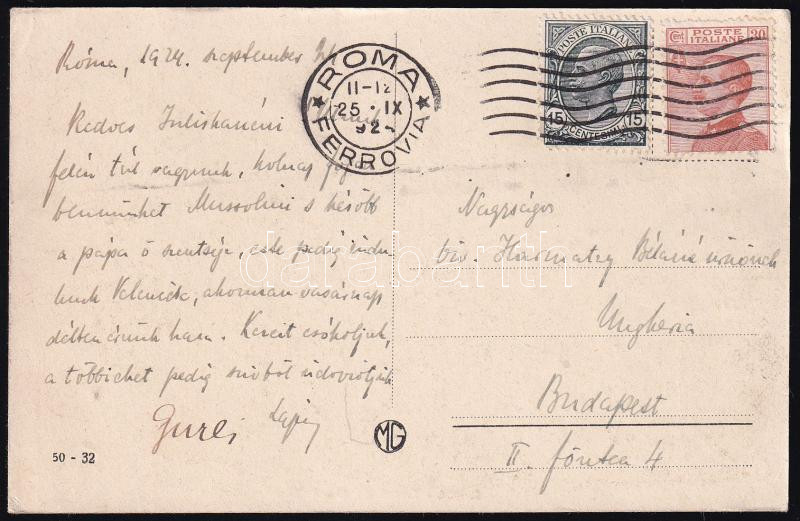 Róma, 1924. szeptember
Kedves Juliskanéni
felén túl vagyunk, holnap fogad
bennünket Mussolini s később
a pápa ő szentsége, este pedig indu-
lunk Velencébe, ahonnan vasárnap
délben érünk haza. Kezeit csókoljuk,
a többieket pedig szívből üdvözöljük
ROMA
11-12
25 · IX
192
FERROVIA
POSTE ITALIANE
15 CENTESIMI 15
Cent. POSTE 30
ITALIANE
Nagyságos
özv. Harmatzy Béláné úrnőnek
Ungheria
Budapest
II. főutca 4
MG
50 - 32
darabanth